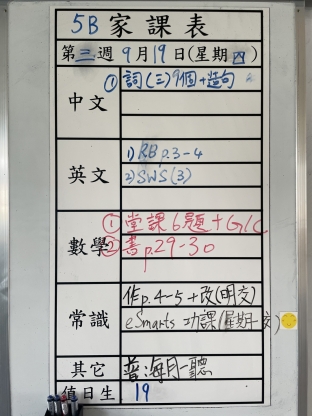 5B 家課表
第三週 9月19日(星期四)
中文 ①詞(三)9個+造句
英文
1) RB p.3-4
2) SWS(3)
數學
①堂課6題+GLC
②書p.29-30
常識
作p.4-5+改(明交)
eSmarts 功課(星期一交)
其它 普:每月一聽
值日生 19